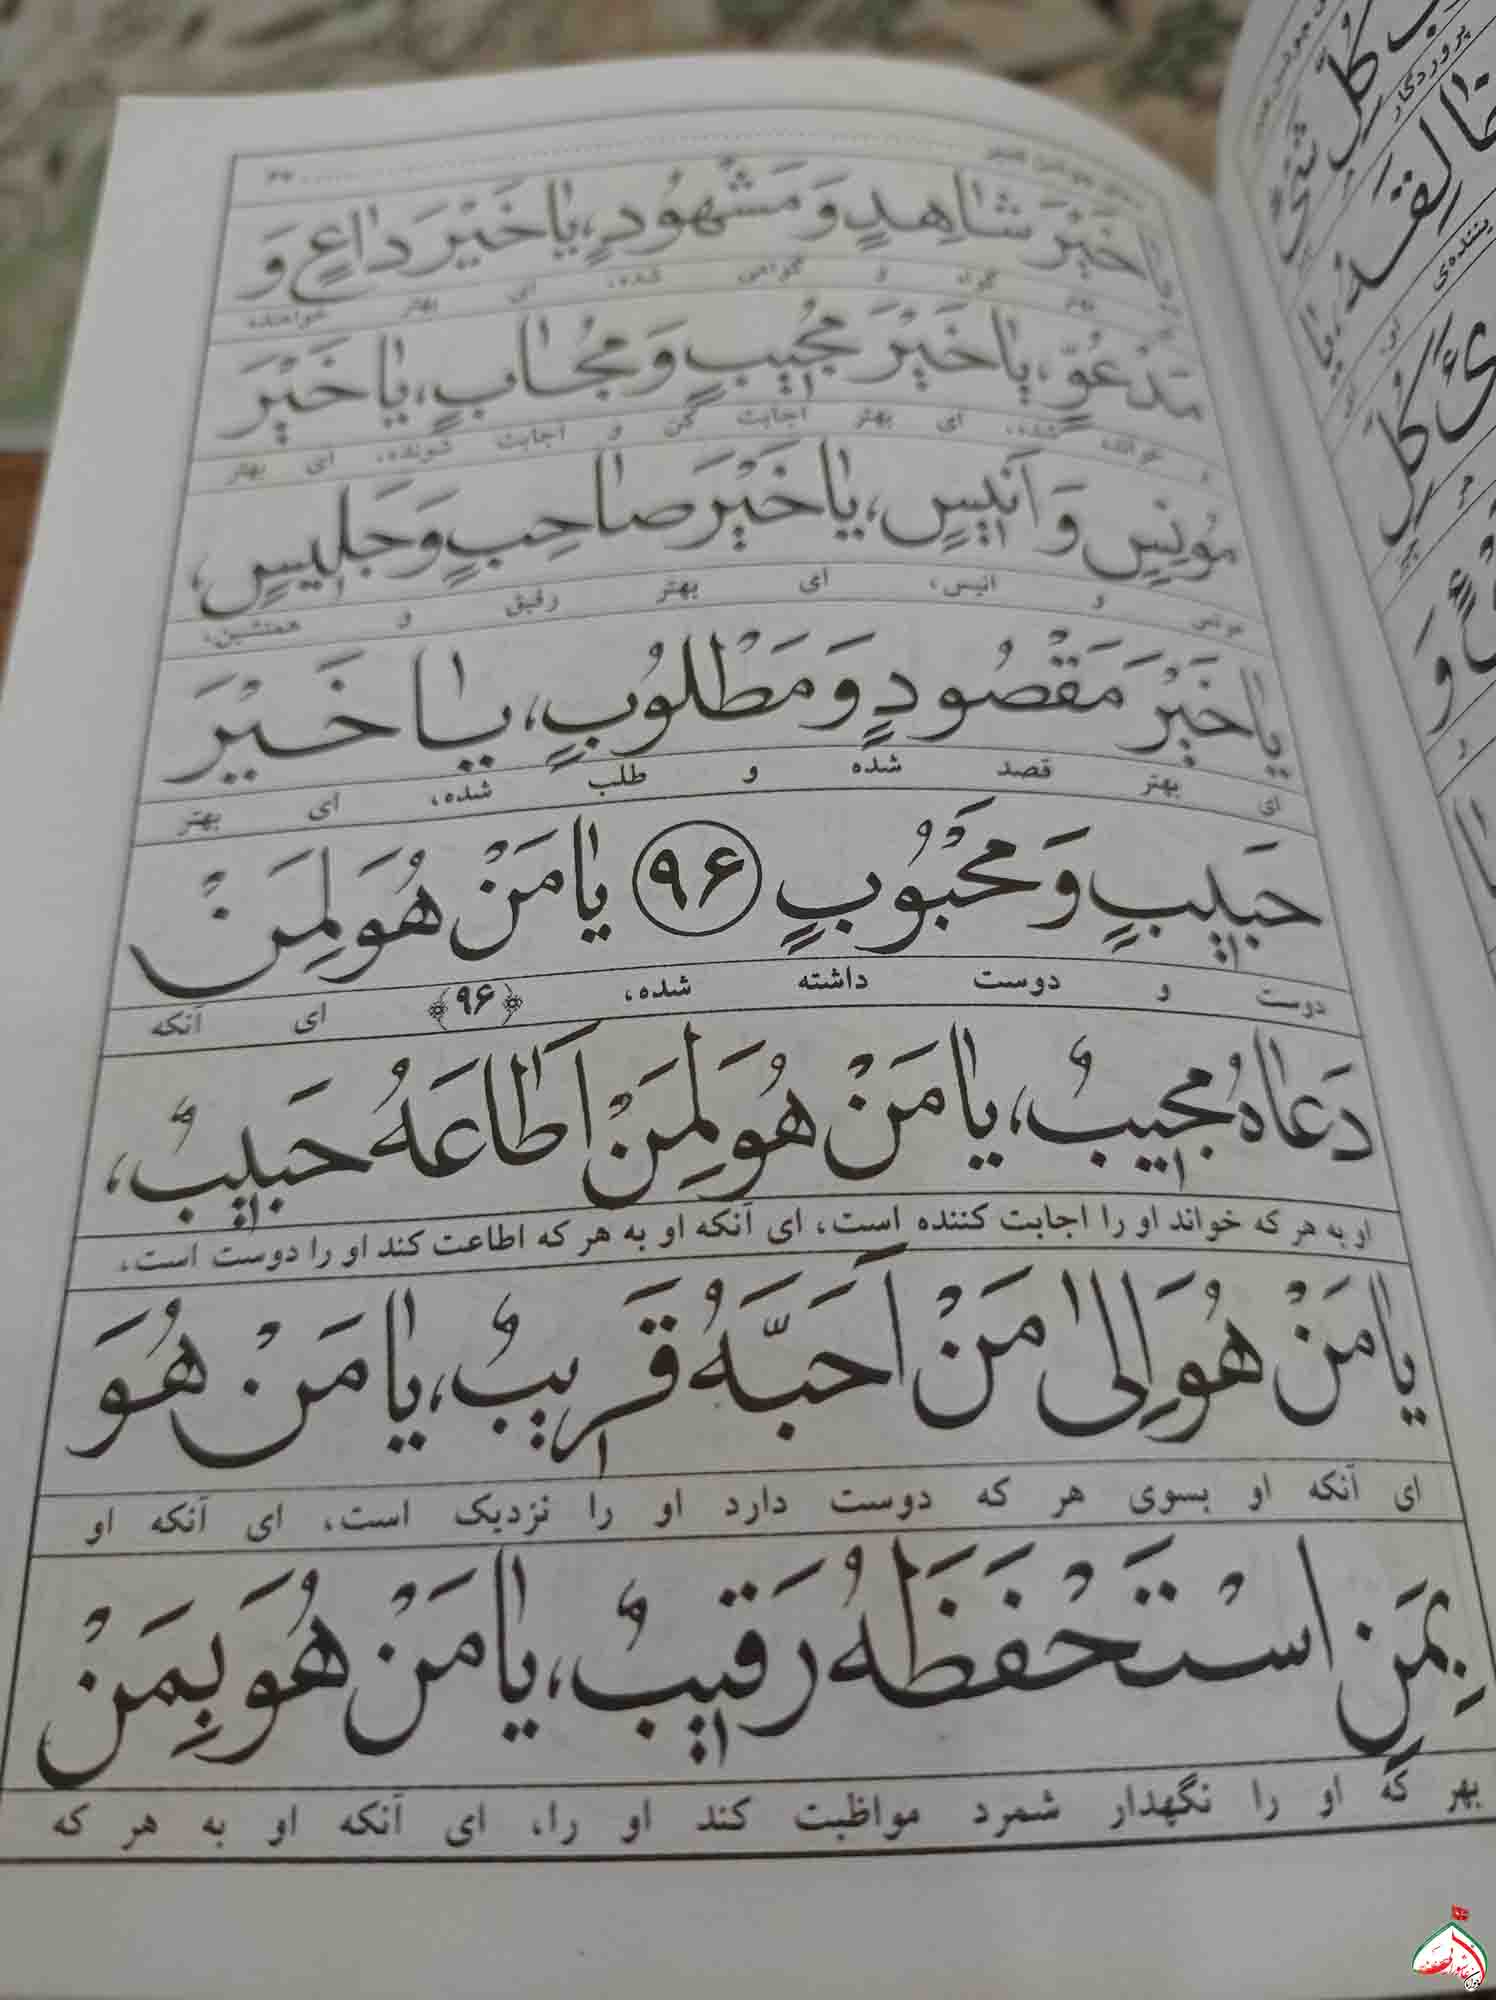 خَيْرَ شاهِدٍ وَ مَشْهُودٍ، يا خَيْرَ داعٍ وَ
بهتر گواه و گواهی شده، ای بهتر خواهنده
مَدْعُوٍّ، يا خَيْرَ مُجيبٍ وَ مُجابٍ، يا خَيْرَ
شده، ای بهتر اجابت کن و اجابت شونده، ای بهتر
مُونِسٍ وَ اَنيسٍ، يا خَيْرَ صاحِبٍ وَ جَليسٍ،
مونس و انیس، ای بهتر رفیق و همنشین،
يا خَيْرَ مَقْصُودٍ وَ مَطْلُوبٍ، يا خَيْرَ
ای بهتر قصد شده و طلب شده، ای بهتر
حَبيبٍ وَ مَحْبُوبٍ ۹۶ يا مَنْ هُوَ لِمَنْ
دوست و دوست داشته شده، ﴿۹۶﴾ ای آنکه
دَعاهُ مُجيبٌ، يا مَنْ هُوَ لِمَنْ اَطاعَهُ حَبيبٌ،
او به هر که خواند او را اجابت کننده است، ای آنکه او به هر که اطاعت کند او را دوست است،
يا مَنْ هُوَ اِلى مَنْ اَحَبَّهُ قَريبٌ، يا مَنْ هُوَ
ای آنکه او بسوی هر که دوست دارد او را نزدیک است، ای آنکه او
بِمَنِ اسْتَحْفَظَهُ رَقيبٌ، يا مَنْ هُوَ بِمَنْ
بهر که او را نگهدار شمرد مواظبت کند او را، ای آنکه او به هر که